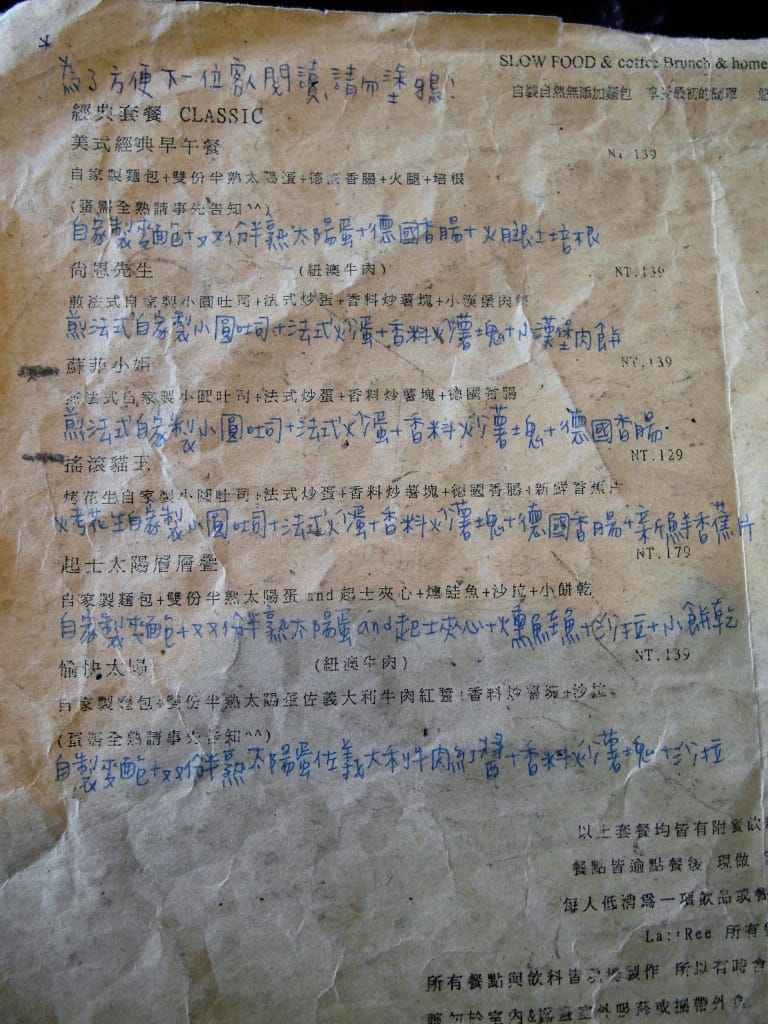 SLOW FOOD & coffee Brunch & home
*為了方便下一位客人閱讀,請勿塗鴉!
自製自然無添加麵包 享受最初的
經典套餐 CLASSIC
美式經典早午餐 NT.139
自家製麵包+雙份半熟太陽蛋+德國香腸+火腿+培根
(蛋需全熟請事先告知^^)
自家製麥面包+双份半熟太陽蛋+德國香腸+火腿+培根
尚恩先生 (紐澳牛肉) NT.139
煎法式自家製小圓吐司+法式炒蛋+香料炒薯塊+小漢堡肉餅
煎法式自家製小圓吐司+法式炒蛋+香料炒薯塊+小漢堡肉餅
蘇菲小姐 NT.139
煎法式自家製小圓吐司+法式炒蛋+香料炒薯塊+德國香腸
煎法式自家製小圓吐司+法式炒蛋+香料炒薯塊+德國香腸
搖滾貓王 NT.129
烤花生自家製小圓吐司+法式炒蛋+香料炒薯塊+德國香腸+新鮮香蕉片
烤花生自家製小圓吐司+法式炒蛋+香料炒薯塊+德國香腸+新鮮香蕉片
起士太陽層層疊 NT.179
自家製麵包+雙份半熟太陽蛋 and 起士夾心+燻鮭魚+沙拉+小餅乾
自家製麵包+双份半熟太陽蛋and起士夾心+燻鮭魚+沙拉+小餅乾
愉快太陽 (紐澳牛肉) NT.139
自家製麵包+雙份半熟太陽蛋佐義大利牛肉紅醬+香料炒薯塊+沙拉
(蛋需全熟請事先告知^^)
自製麵包+双份半熟太陽蛋佐義大利牛肉紅醬+香料炒薯塊+沙拉
以上套餐均皆有附餐飲
餐點皆逾點餐後 現做
每人低消為一項飲品或餐
La::Ree 所有
所有餐點與飲料皆現場製作 所以有時會
請勿於室內&騎樓室外吸菸或攜帶外食